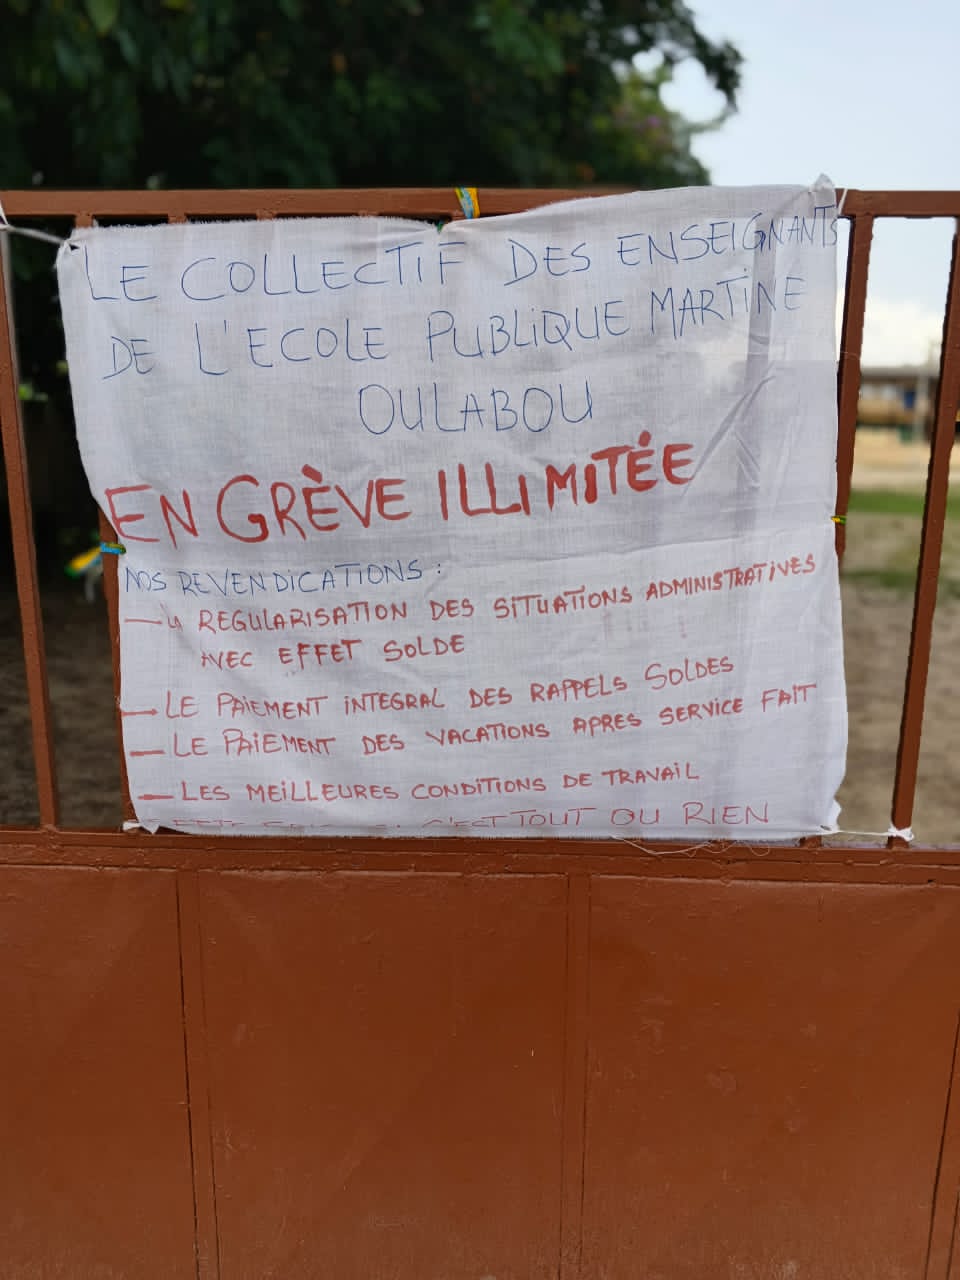 LE COLLECTIF DES ENSEIGNANTS
DE L'ECOLE PUBLIQUE MARTINE
OULABOU
EN GRÈVE ILLIMITÉE
NOS REVENDICATIONS :
↳ REGULARISATION DES SITUATIONS ADMINISTRATIVES
AVEC EFFET SOLDE
— LE PAIEMENT INTEGRAL DES RAPPELS SOLDES
— LE PAIEMENT DES VACATIONS APRES SERVICE FAIT
— LES MEILLEURES CONDITIONS DE TRAVAIL
C'EST TOUT OU RIEN